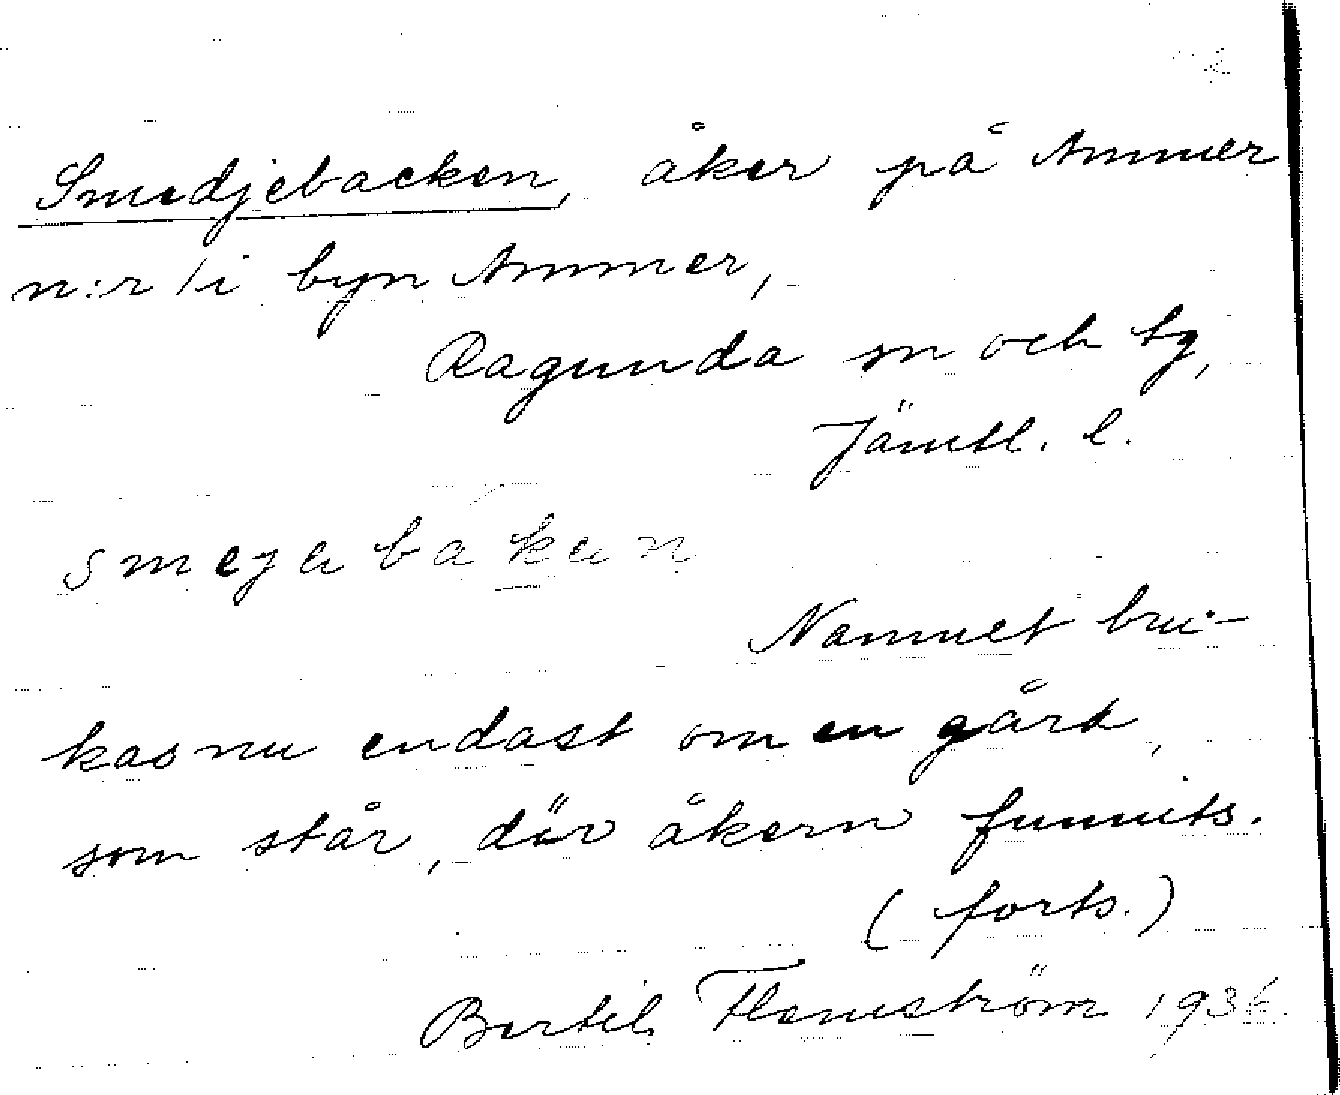 Smedjebacken, åker på Ammer
n:r 1 i byn Ammer,
Ragunda sn och tg,
Jämtl. l.
smejabakan
Namnet bru-
kas nu endast om en gård,
som står, där åkern funnits.
(forts.)
Bertil Flemström 1936.